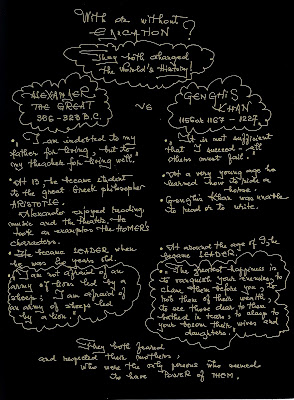 With or without
EDUCATION ?
They both changed
the World's History!
ALEXANDER
THE GREAT
356 - 323 B.C.
VS
GENGHIS
KHAN
1155 or 1167 - 1227
• "I am indebted to my
father for living, but to
my teacher for living well."
• At 13, he became student
to the great Greek philosopher
ARISTOTLE.
Alexander enjoyed reading,
music and the theatre. He
took as examples the HOMER's
characters.
• He became LEADER when
he was 20 years old.
• "I am not afraid of an
army of lions led by a
sheep; I am afraid of
an army of sheep led
by a lion."
• "It is not sufficient
that I succeed - all
others must fail."
• At a very young age he
learned how to ride a
horse.
• Genghis Khan was unable
to read or to write.
• At around the age of 9, he
became LEADER.
• "The greatest happiness is
to vanquish your enemies, to
chase them before you, to
rob them of their wealth,
to see those dear to them
bathed in tears, to clasp to
your bosom their wives and
daughters."
They both feared
and respected their mothers,
who were the only persons who seemed
to have POWER of THEM.